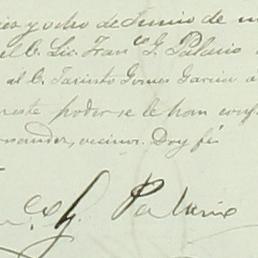 y ocho de Junio de
el C. Lic. Fran.co G. Palacio
al C. Jacinto Gomez Garcia
este poder se le han conf
ernandez, vecinos. Doy fé
co G. Palacio